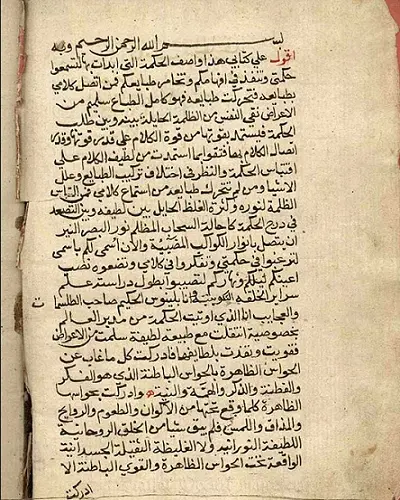 بسم الله الرحمن الرحيم وبه
اقول على كتابي هذا واصف الحكمة التي ايدت بها لتسمعوا
حكمتي وتنفذ في افهامكم وتخامر طبايعكم فمن اتصل كلامي
بطبايعه فتحركت طبايعه فهو كامل الطباع سليم من
الاعراض نقي النفس من الظلمة الحايلة بينه وبين طلب
الحكمة فليستدل بقوتها من قوة الكلام على قدر قوتها وقدر
اتصال الكلام بها فتقوا بما استمدت من لطيف الكلام على
اقتباس الحكمة والنظر في اختلاف تركيب الطبايع وعلل
الاشيا ومن لم تتحرك طبايعه من استماع كلامي فمن التباس
الظلمة لنوره ولكثرة الغلظ الحايل بين لطيفه وبين التصعد
في درج الحكمة كما حالة السحاب المظلم نور البصر النير
ان يتصل بانوار الكواكب المضيئة والان اسمي لكم باسمي
لترغبوا في حكمتي وتفكروا في كلامي وتضعوه نصب
اعينكم ليلكم ونهاركم لتصيبوا بطول دراسته علم
سراير الخليقة انا بلينوس الحكيم صاحب الطلسمات
والعجايب انا الذي اوتيت الحكمة من مدبر العالم
بخصوصية اتصلت مع طبيعة لطيفة سلمت من الاعراض
فقويت ونفذت بلطايفها فادركت كل ما غاب عن
الحواس الظاهرة بالحواس الباطنة الذي هو الفكر
والفطنة والذكر والهمة والنية وادركت بحواسها
الظاهرة كلما وقع تحتها من الالوان والطعوم والروايح
والمذاق واللمس فلم يبق شيا من الخلق الروحانية
اللطيفة النورانية ولا الغليظة الثقيلة الجسدانية
الواقعة تحت الحواس الظاهرة والقوى الباطنة الا
ادركته